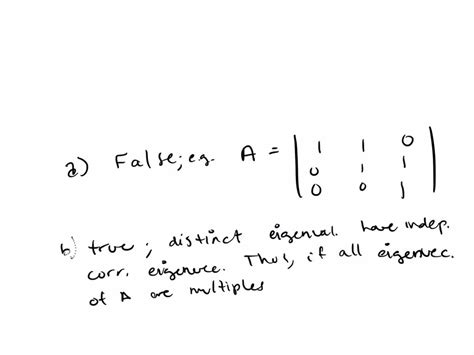 a) False; eg. A = | 1 1 0
0 1 1
0 0 1 |
b) true ; distinct eigenval. have indep.
corr. eigenvec. Thus, if all eigenvec.
of A are multiples